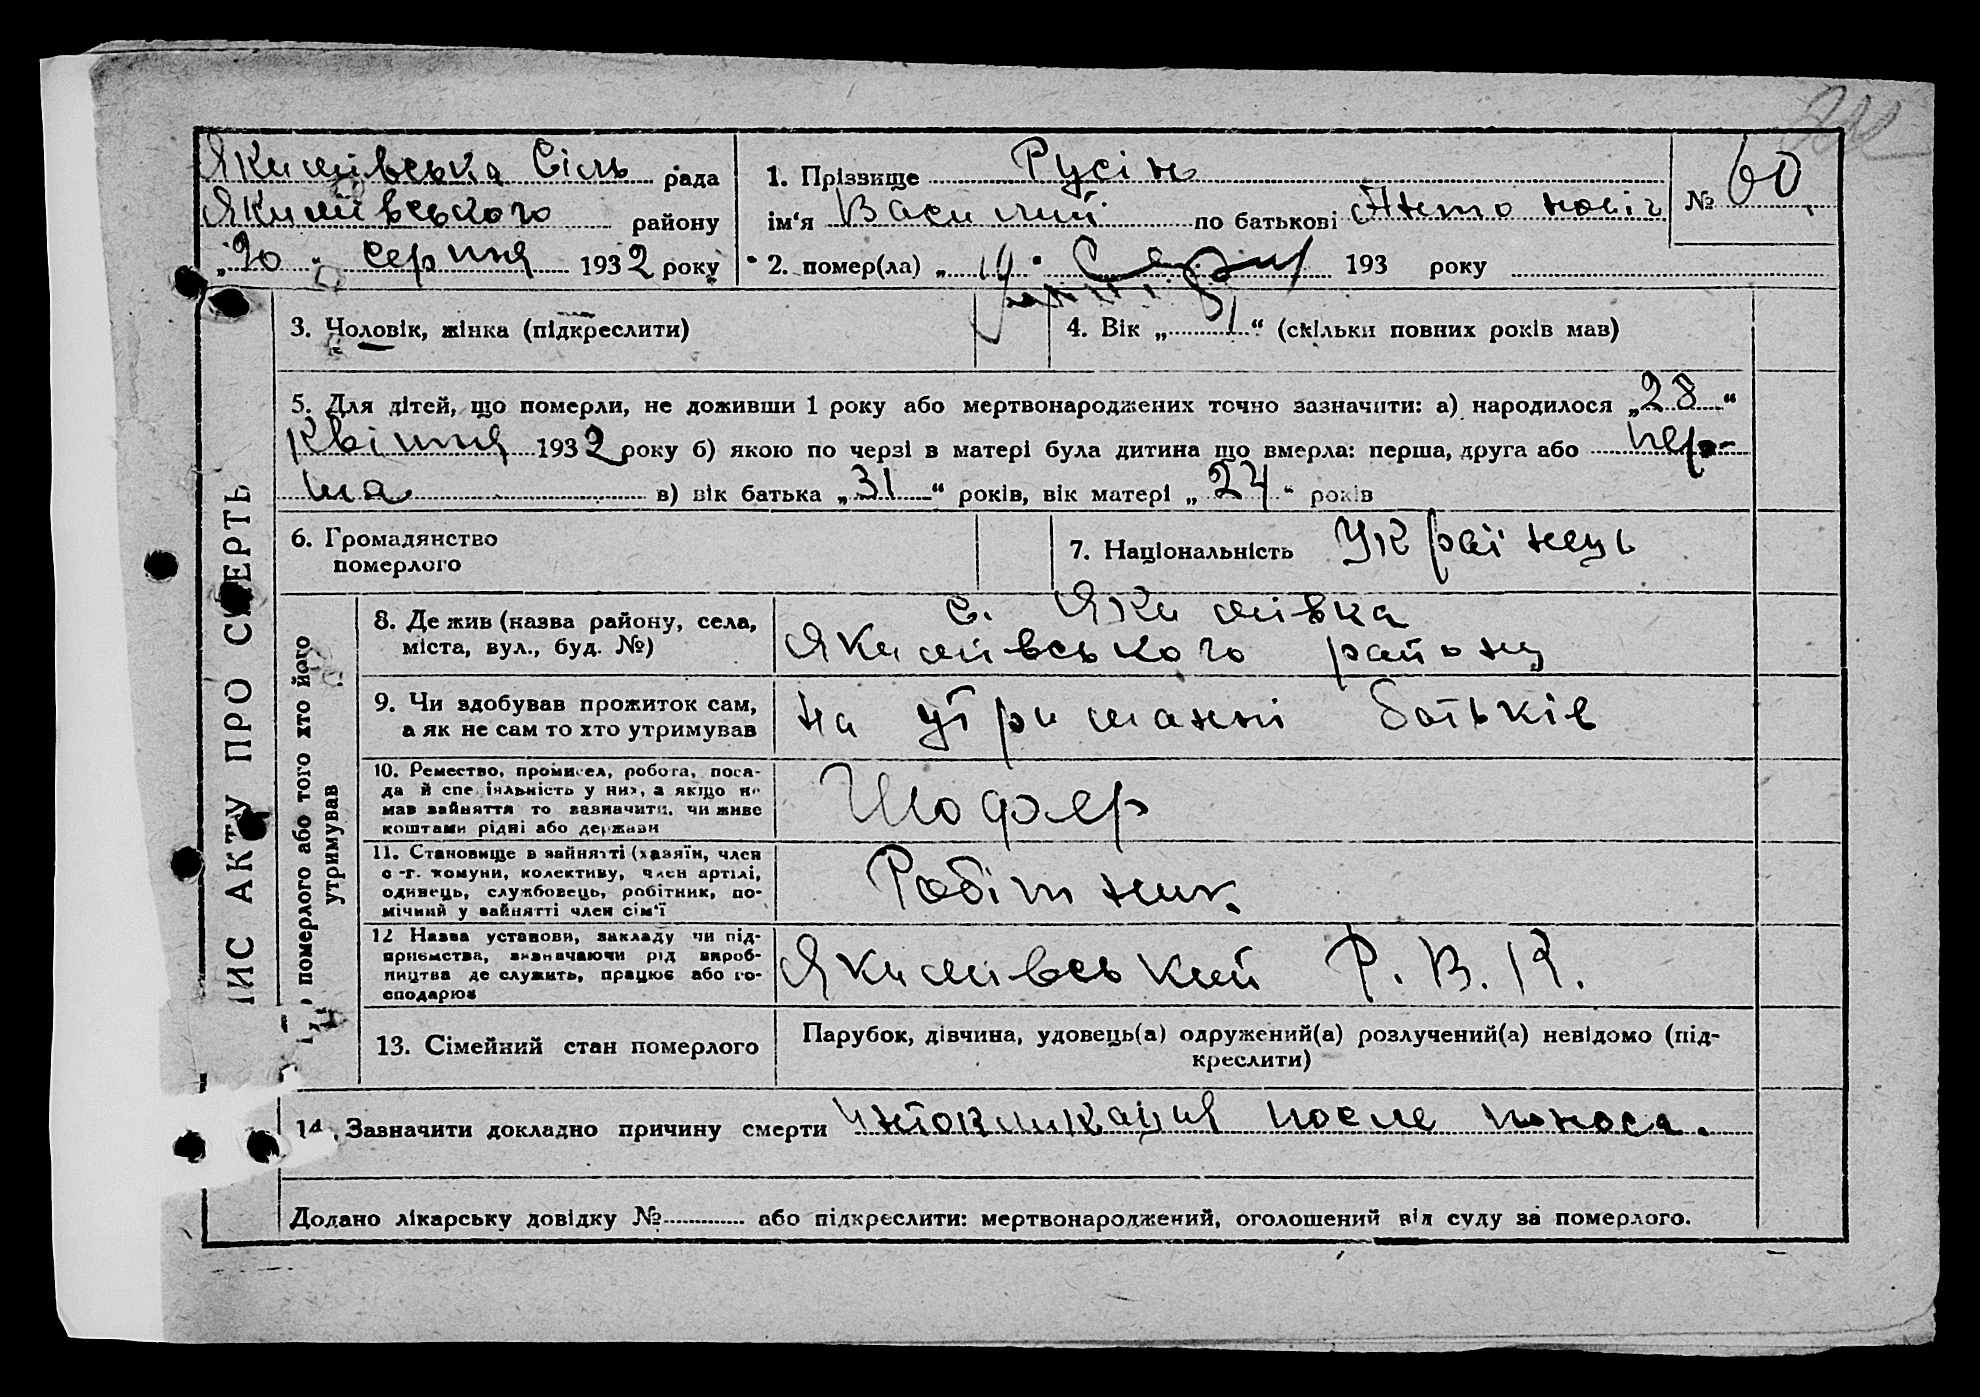 Якимівська Сіль рада
Якимівського району
„20“ серпня 1932 року
1. Прізвище Русін
ім'я Василий по батькові Антоновіч
№ 60.
2. помер(ла) „19“ Серпн 193 року
3. Чоловік, жінка (підкреслити)
4. Вік „ “ (скільки повних років мав)
5. Для дітей, що померли, не доживши 1 року або мертвонароджених точно зазначити: а) народилося „28“
Квітня 1932 року б) якою по черзі в матері була дитина що вмерла: перша, друга або пер-
ша в) вік батька „31“ років, вік матері „24“ років
6. Громадянство
померлого
7. Національність Українець
ПИС АКТУ ПРО СМЕРТЬ
померлого або того хто його
утримував
8. Де жив (назва району, села,
міста, вул., буд. №)
с. Якимівка
Якимівського району
9. Чи здобував прожиток сам,
а як не сам то хто утримував
на утриманні батьків
10. Ремество, промисел, робота, поса-
да й спеціяльність у них, а якщо не
мав зайняття то зазначити, чи живе
коштами рідні або держави
Шофер
11. Становище в зайнятті (хазяїн, член
с.-г. комуни, колективу, член артілі,
одинець, службовець, робітник, по-
мічний у зайнятті член сім'ї
Робітник.
12 Назва установи, закладу чи під-
приємства, визначаючи рід вироб-
ництва де служить, працює або го-
сподарює
Якимівський Р.В.К.
13. Сімейний стан померлого
Парубок, дівчина, удовець(а) одружений(а) розлучений(а) невідомо (під-
креслити)
14. Зазначити докладно причину смерти Интоксикация после поноса.
Додано лікарську довідку № або підкреслити: мертвонароджений, оголошений від суду за померлого.